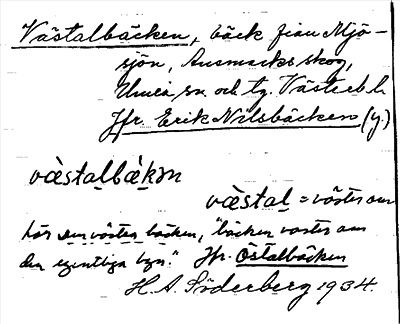 Västalbäcken, bäck från Mjö-
sjön, Ansmarks skog,
Umeå sn. och tg. Västerb. l.
Jfr. Erik Nilsbäcken (y.)
væ̀stalbæ̀kən
væ̀stal = väster om
här den västra bäcken, "bäcken väster om
den egentliga byn." Jfr. Östalbäcken
H. A. Söderberg 1934.